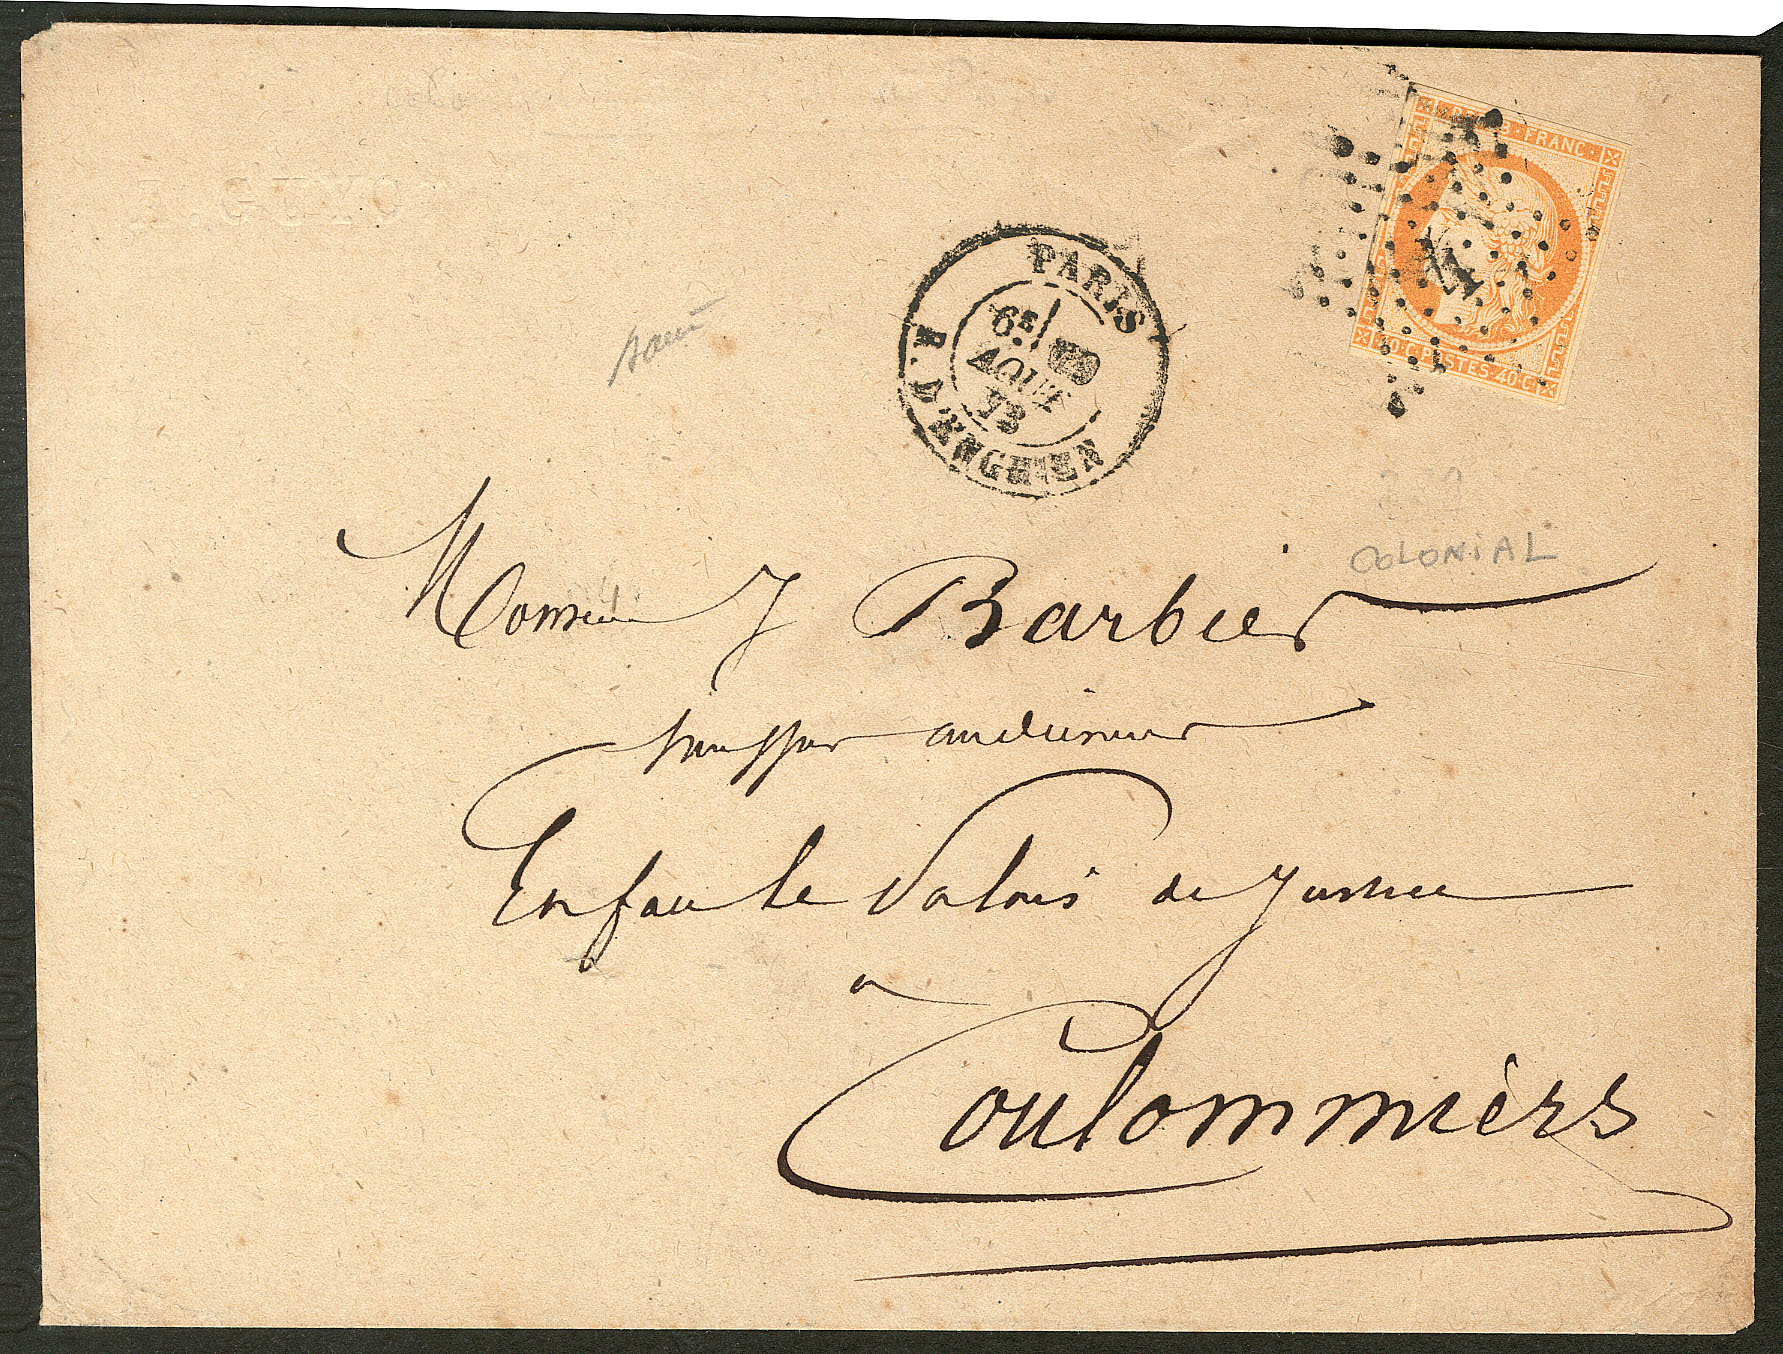 GUYO
REPUB · FRANC ·
4
40·C·POSTES·40·C
PARIS
6E/
AOUT
73
R. D'ENGHIEN
COLONIAL
Monsieur J Barbier
huissier audiencier
En face le Palais de Justice
a
Coulommiers